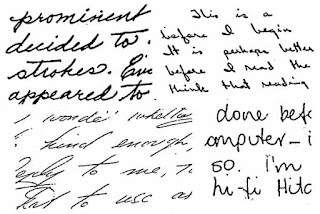 prominent
decided to.
strokes. Eve
appeared to
This is a
before I begin
It is perhaps better
before I read the
think that reading
I wonder whether
kind enough,
Reply to me, to
that to use as
done befo
omputer – i
so. I'm
hi-fi Hitc